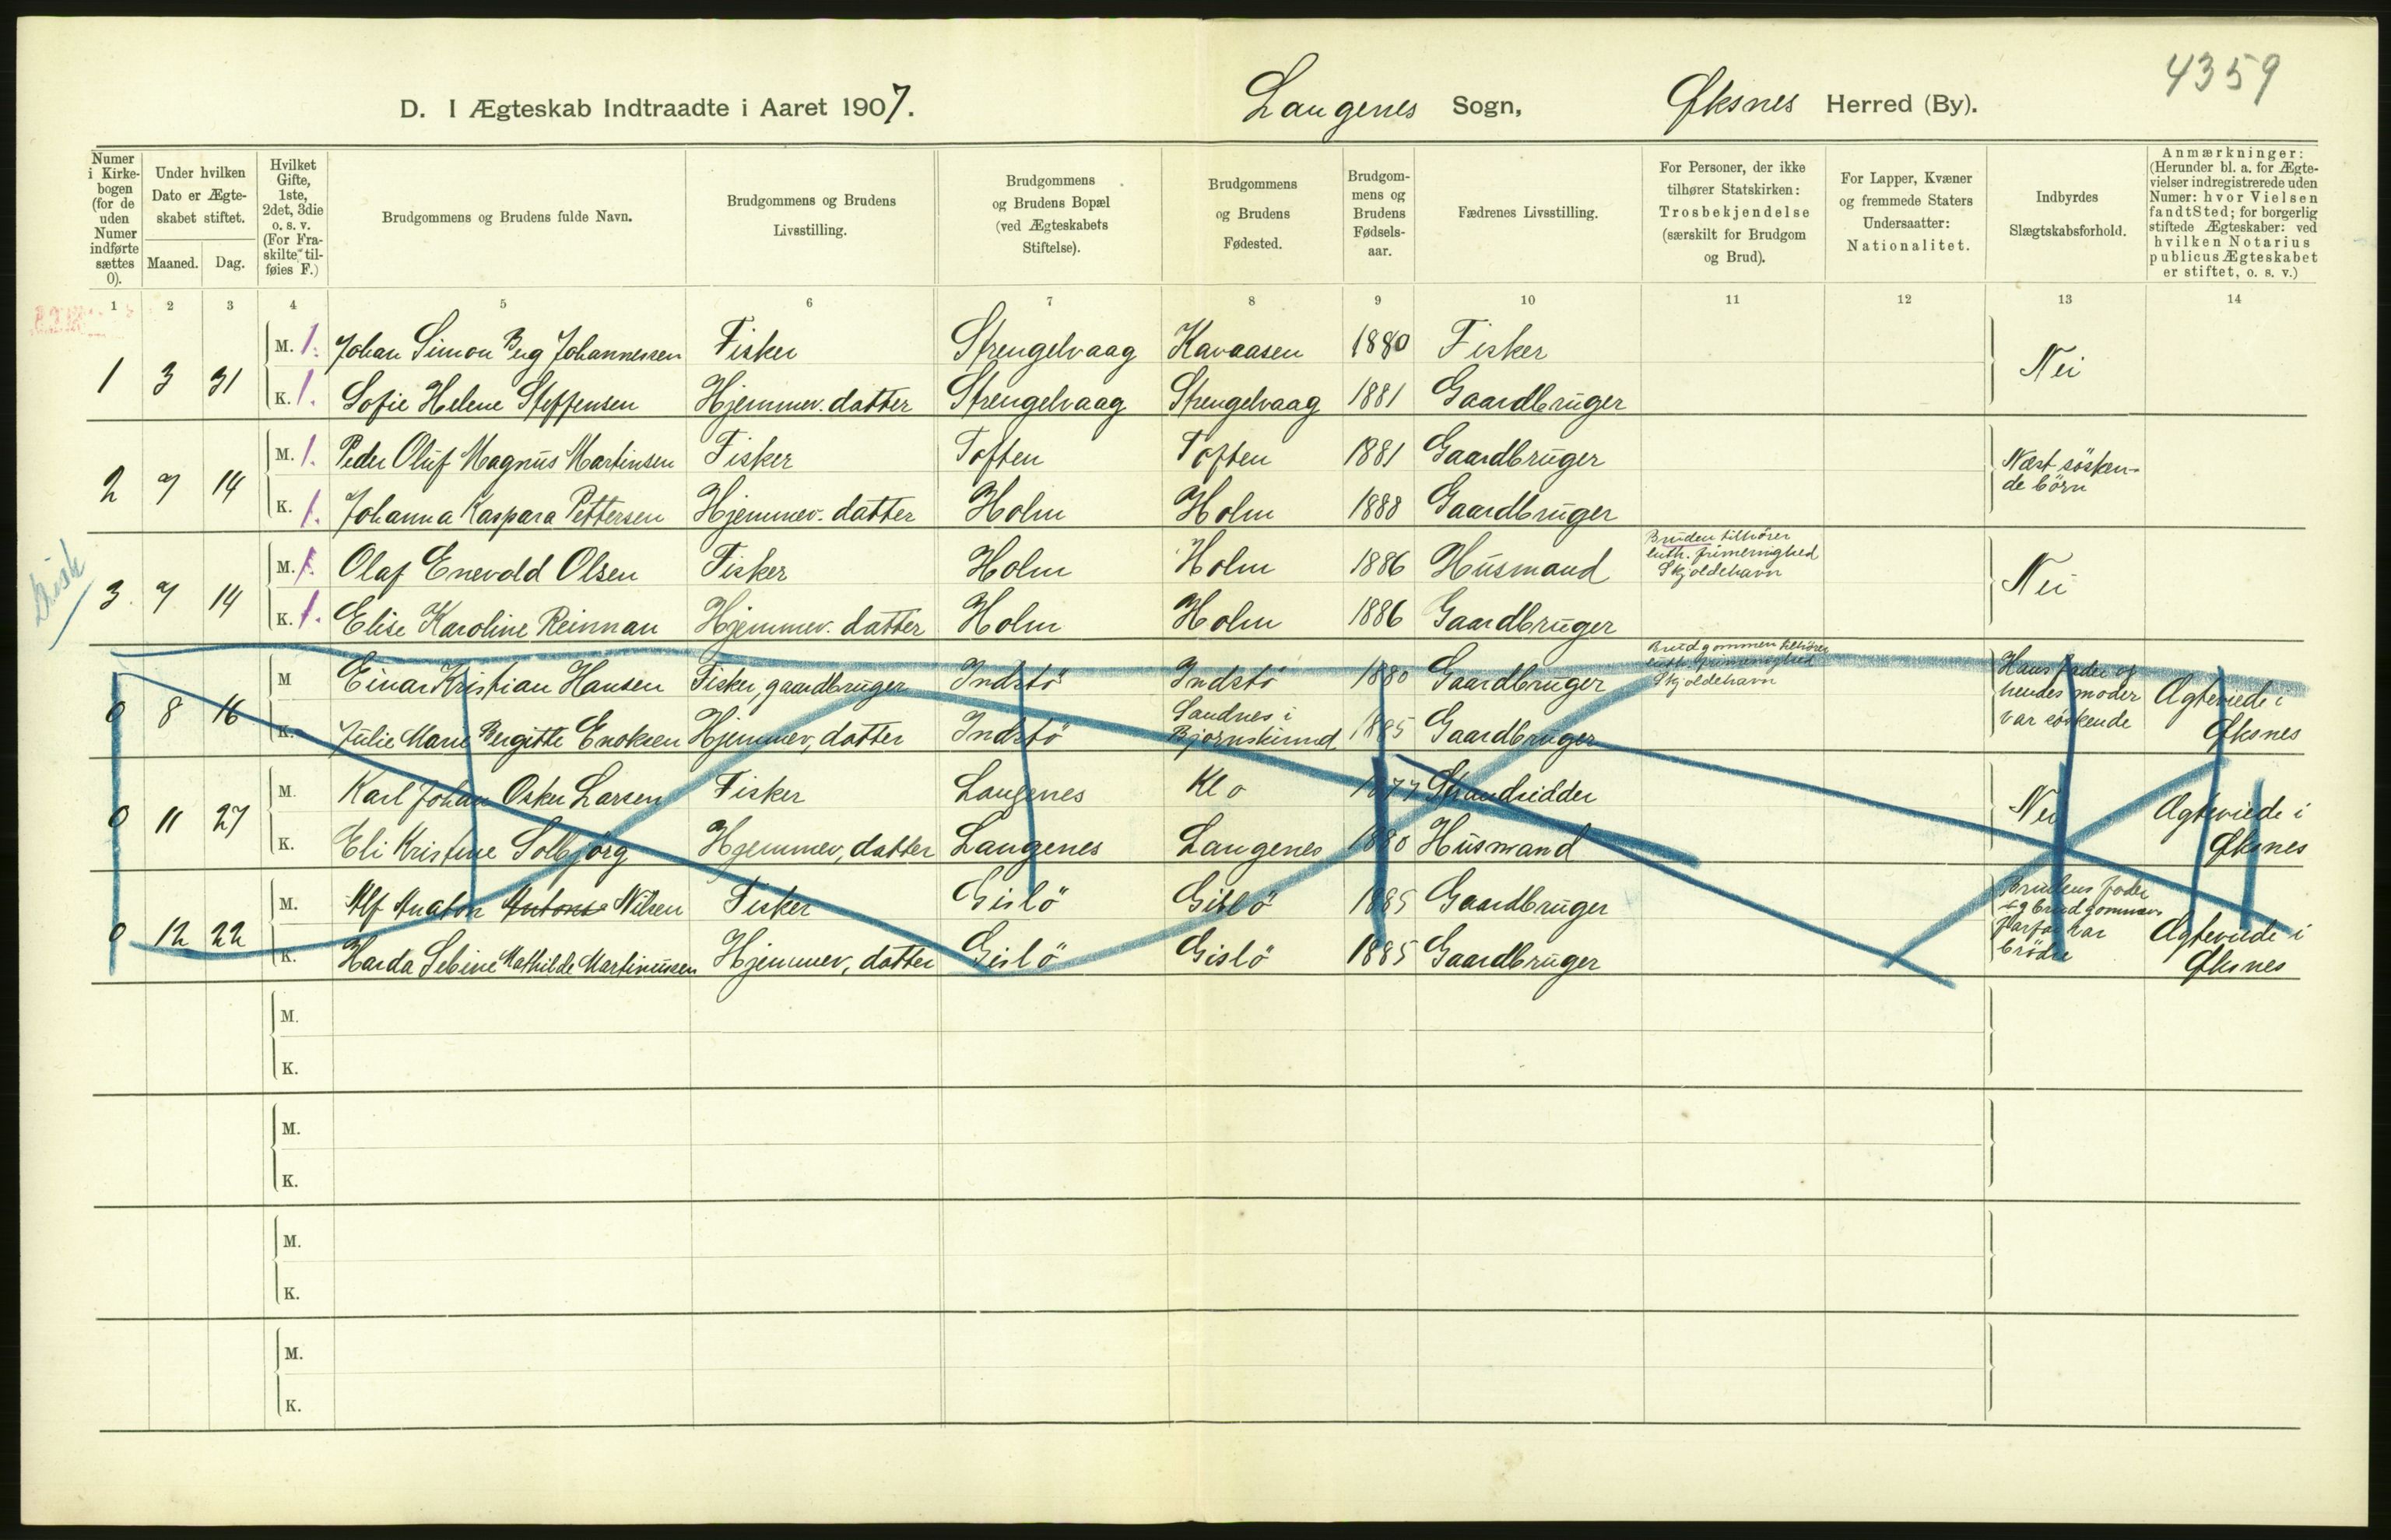 4359
D. I Ægteskab Indtraadte i Aaret 1907. Langenes Sogn, Øksnes Herred (By).
Numer i Kirkebogen (for de uden Numer indførte sættes 0).
Under hvilken Dato er Ægteskabet stiftet.
Maaned. Dag.
Hvilket Gifte, 1ste, 2det, 3die o. s. v. (For Fraskilte tilføies F.)
Brudgommens og Brudens fulde Navn.
Brudgommens og Brudens Livsstilling.
Brudgommens og Brudens Bopæl (ved Ægteskabets Stiftelse).
Brudgommens og Brudens Fødested.
Brudgommens og Brudens Fødselsaar.
Fædrenes Livsstilling.
For Personer, der ikke tilhører Statskirken: Trosbekjendelse (særskilt for Brudgom og Brud).
For Lapper, Kvæner og fremmede Staters Undersaatter: Nationalitet.
Indbyrdes Slægtskabsforhold.
Anmærkninger: (Herunder bl. a. for Ægtevielser indregistrerede uden Numer: hvor Vielsen fandt Sted; for borgerlig stiftede Ægteskaber: ved hvilken Notarius publicus Ægteskabet er stiftet, o. s. v.)
1 2 3 4 5 6 7 8 9 10 11 12 13 14
1 3 31 M. 1. Johan Simon Berg Johannessen Fisker Strengelvaag Kavaasen 1880 Fisker Nei
K. 1. Sofie Helene Steffensen Hjemmev. datter Strengelvaag Strengelvaag 1881 Gaardbruger
2 7 14 M. 1. Peder Oluf Magnus Martinsen Fisker Toften Toften 1881 Gaardbruger Næst søsken-
de børn
K. 1. Johanna Kaspara Pettersen Hjemmev. datter Holm Holm 1888 Gaardbruger
3 7 14 M. 1. Olaf Enevold Olsen Fisker Holm Holm 1886 Husmand Bruden tilhører
luth. frimenighed
Skjoldehavn Nei
K. 1. Elise Karoline Reinman Hjemmev. datter Holm Holm 1886 Gaardbruger
0 8 16 M Einar Kristian Hansen Fisker, gaardbruger Indstö Indstö 1880 Gaardbruger Brudgommen tilhører
luth. frimenighed
Skjoldehavn Hans fader og
hendes moder
var søskende Ægteviede i
Øksnes
K. Julie Marie Bergitte Enoksen Hjemmev, datter Indstö Sandnes i
Bjørnskinnd 1885 Gaardbruger
0 11 27 M. Karl Johan Oskar Larsen Fisker Langenes Klo 1877 Strandsidder Nei Ægteviede i
Øksnes
K. Eli Kristine Solbjørg Hjemmev, datter Langenes Langenes 1880 Husmand
0 12 22 M. Alf Anaton Antons Nilsen Fisker Gislö Gislö 1885 Gaardbruger Brudens fader
og brudgommens
farfar var
brødre Ægteviede i
Øksnes
K. Harda Sebine Mathilde Martinussen Hjemmev, datter Gislö Gislö 1885 Gaardbruger
M.
K.
M.
K.
M.
K.
M.
K.